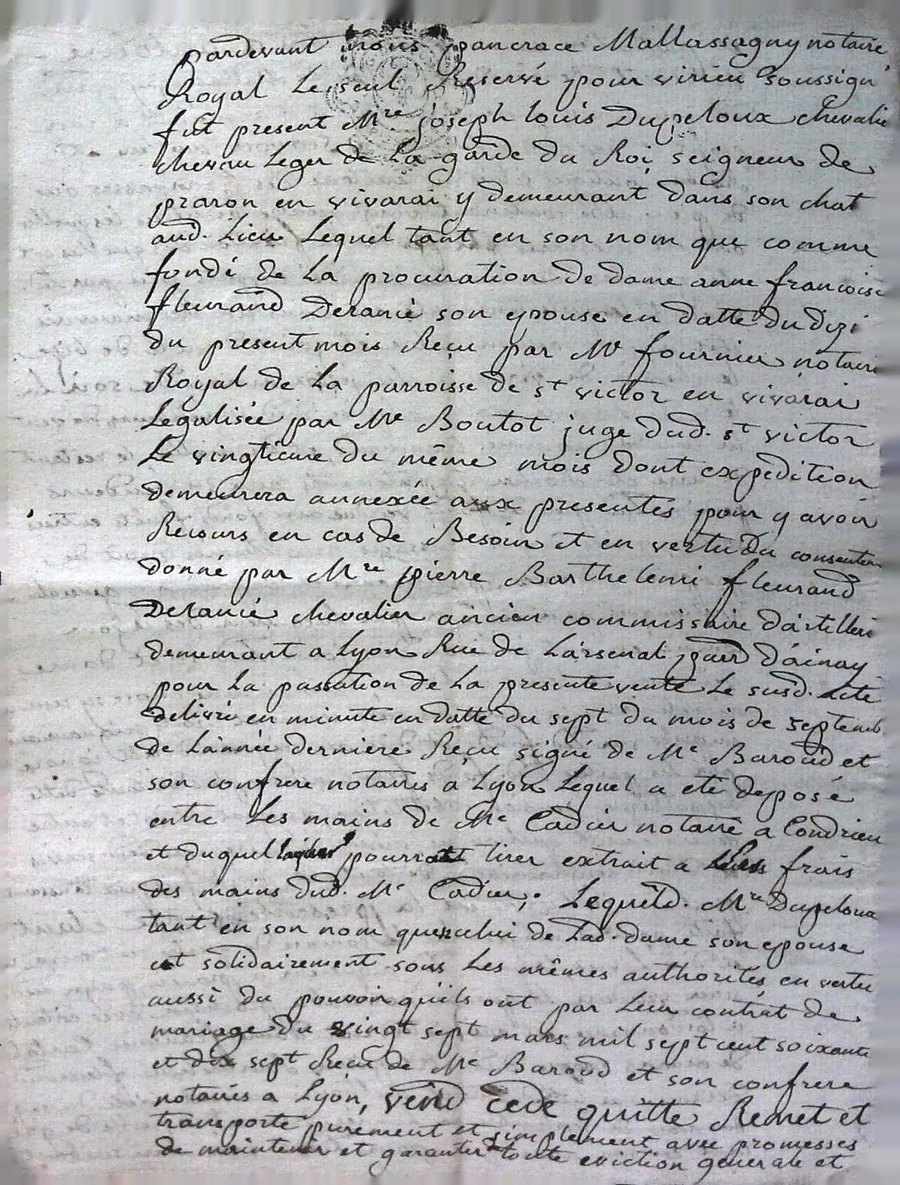 pardevant nous pancrace Mallassagny notaire
Royal Le seul Reservé pour virieu soussigné
fut present Mre joseph louis Dupeloux chevalie
chevau Leger de La garde du Roi seigneur de
praron en vivarai y demeurant dans son chat
aud. Lieu Lequel tant en son nom que comme
fondé de La procuration de dame anne francoise
fleurand Deranié son epouse en datte du dizi
du present mois Reçu par Me fournier notaire
Royal de La parroisse de st victor en vivarai
Legalisée par Me Boutot juge dud. st victor
Le vingtieme du même mois dont expedition
demeurera annexée aux presentes pour y avoir
Recours en cas de Besoin et en vertu du consentem
donné par Mre pierre Barthelemi fleurand
Deranié chevalier ancien commissaire dartilleri
demeurant a Lyon Rue de L'arsenal d'ainay
pour La passation de La presente vente Le susd. acte
delivré en minute en datte du sept du mois de septemb
de L'année derniere Reçu signé de Me Baroud et
son confrere notaires a Lyon Lequel a eté deposé
entre Les mains de Me Cadier notaire a Condrieu
et duquel pourra tirer extrait a frais
des mains dud. Me Cadier. Lequel d. Mre Dupeloux
tant en son nom que celui de Lad. dame son epouse
et solidairement sous Les mêmes authorités en vertu
aussi du pouvoir qu'ils ont par Leur contrat de
mariage du vingt sept mars mil sept cent soixante
et dix sept Reçu de Me Baroud et son confrere
notaires a Lyon, vend cede quitte Remet et
transporte purement et simplement avec promesses
de maintenir et garantir de toute eviction generale et